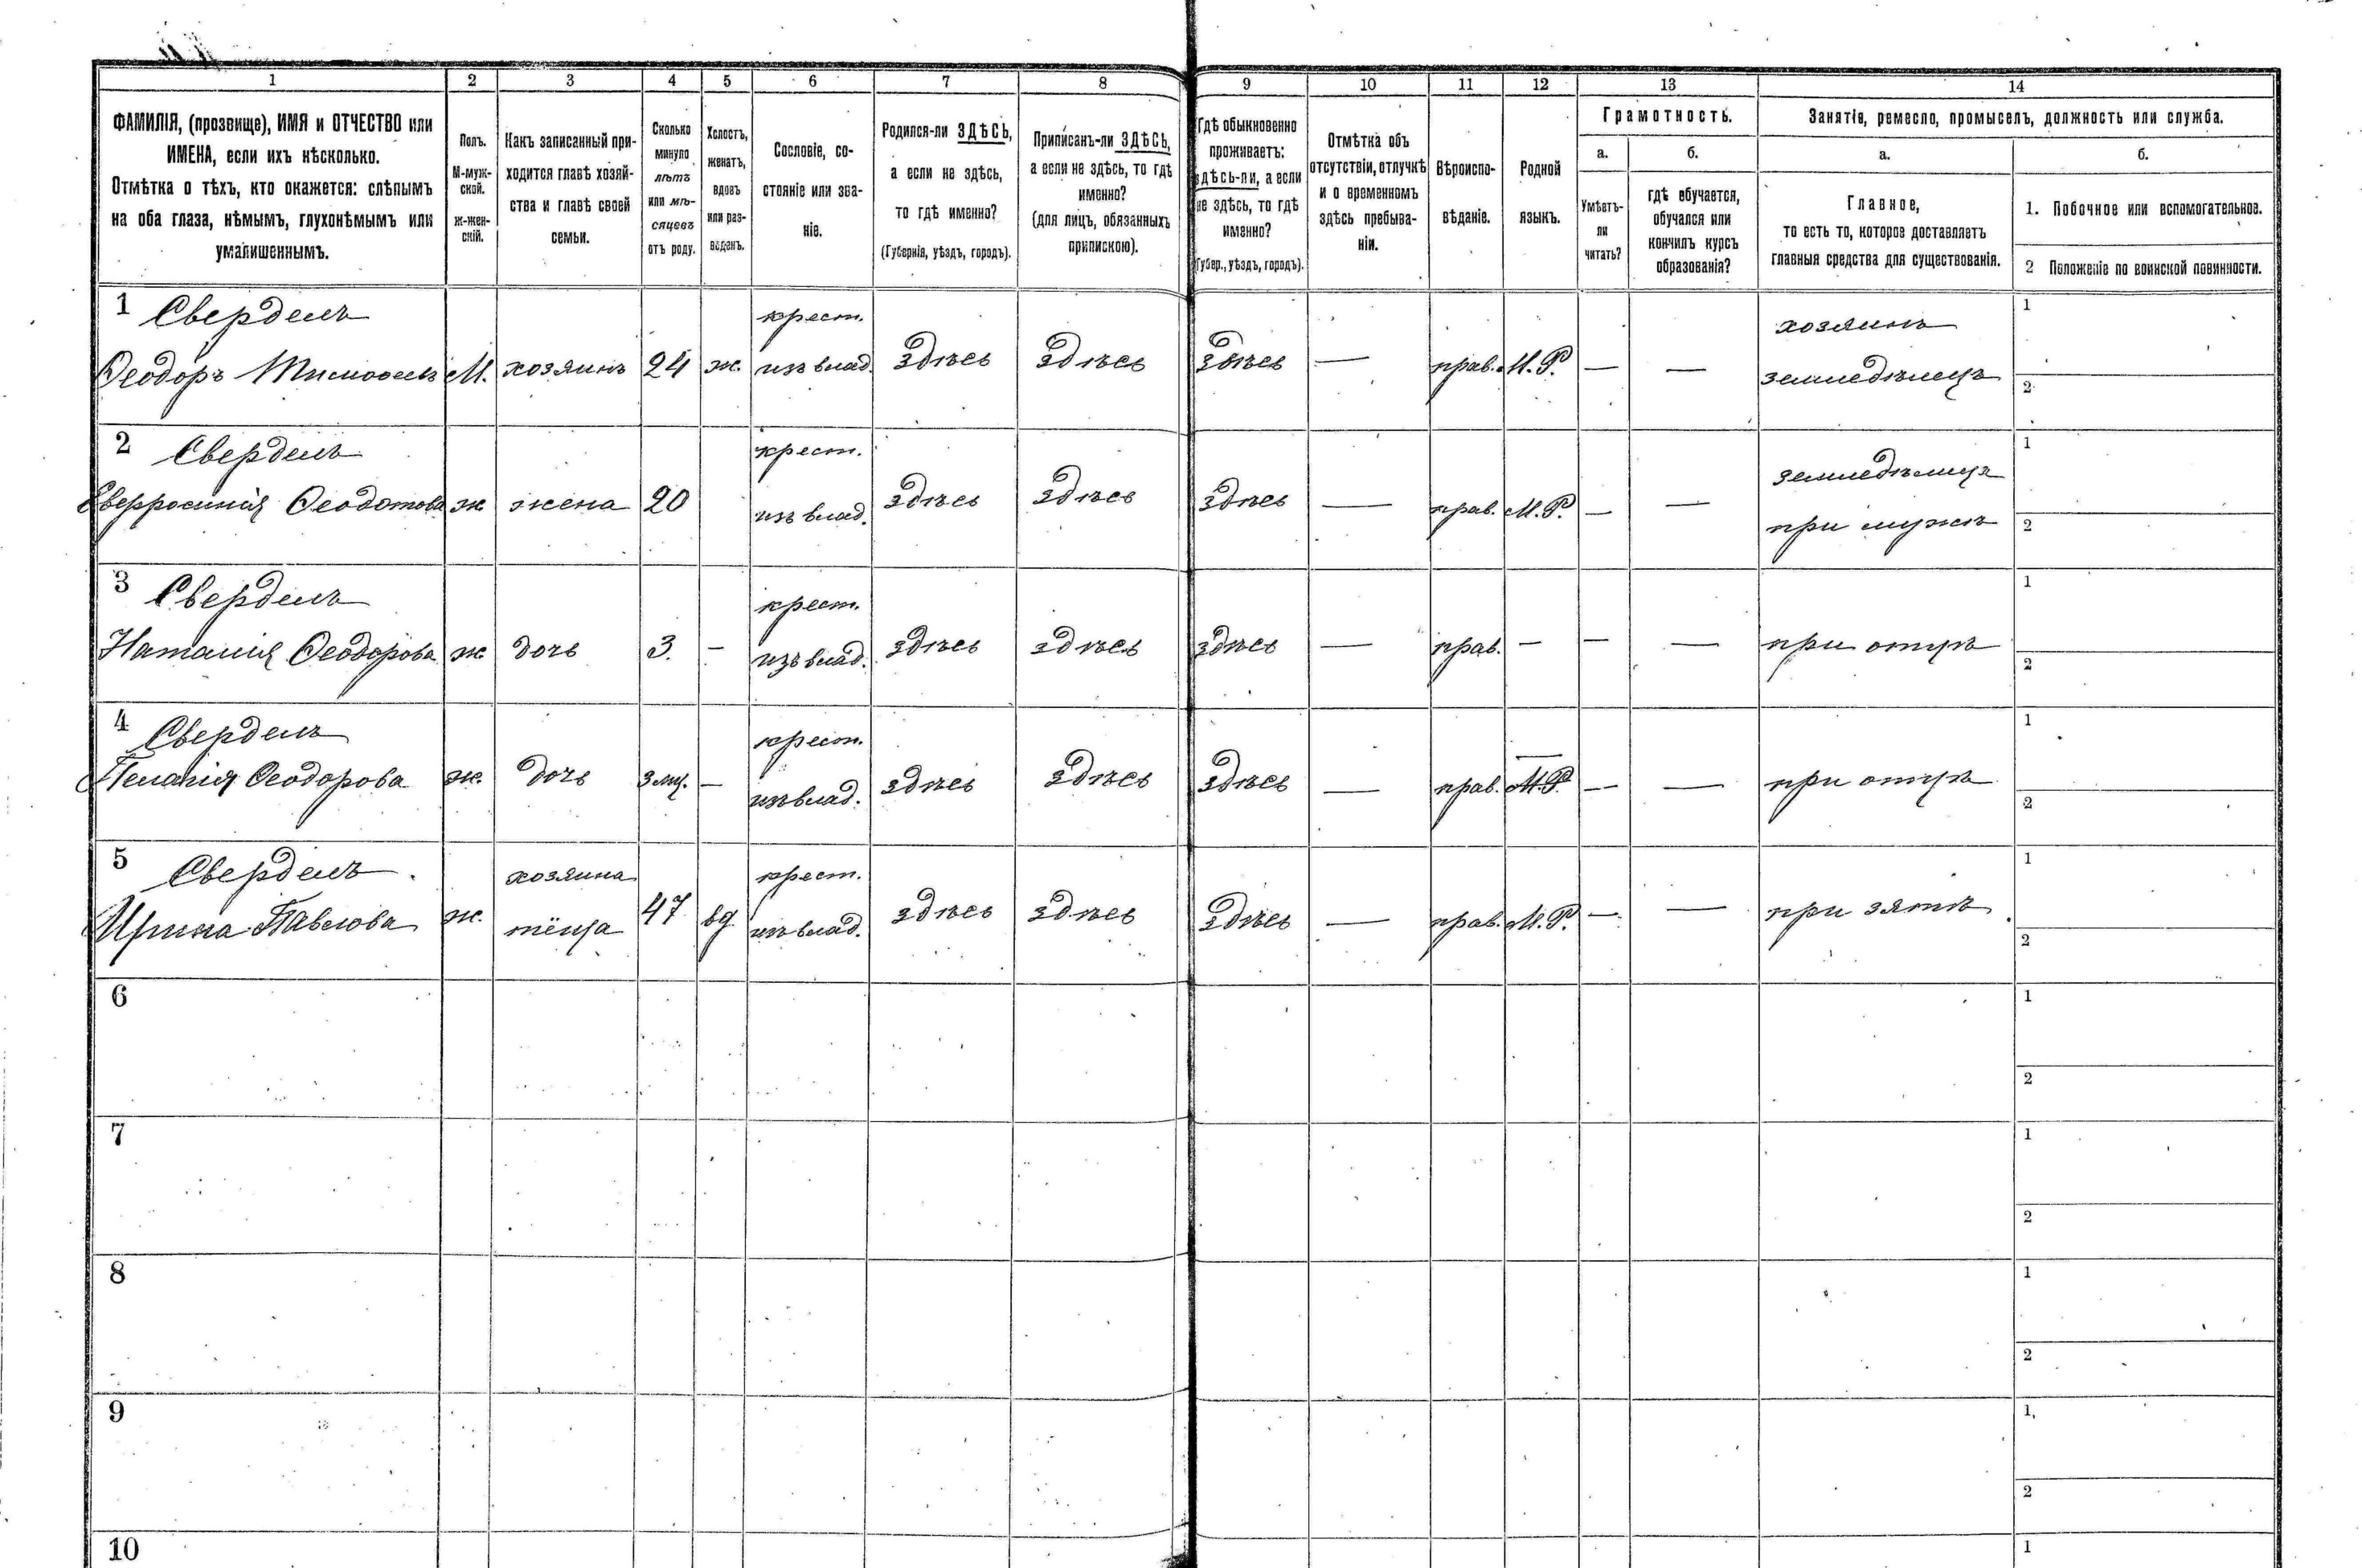 1 2 3 4 5 6 7 8 9 10 11 12 13 14
ФАМИЛІЯ, (прозвище), ИМЯ и ОТЧЕСТВО или
ИМЕНА, если ихъ нѣсколько.
Отмѣтка о тѣхъ, кто окажется: слѣпымъ
на оба глаза, нѣмымъ, глухонѣмымъ или
умалишеннымъ.
Полъ.
М-муж-
ской.
ж-жен-
скій.
Какъ записанный при-
ходится главѣ хозяй-
ства и главѣ своей
семьи.
Сколько
минуло
лѣтъ
или мѣ-
сяцевъ
отъ роду.
Холостъ,
женатъ,
вдовъ
или раз-
веденъ.
Сословіе, со-
стояніе или зва-
ніе.
Родился-ли ЗДѢСЬ,
а если не здѣсь,
то гдѣ именно?
(Губернія, уѣздъ, городъ).
Приписанъ-ли ЗДѢСЬ,
а если не здѣсь, то гдѣ
именно?
(для лицъ, обязанныхъ
припискою).
Гдѣ обыкновенно
проживаетъ:
здѣсь-ли, а если
не здѣсь, то гдѣ
именно?
(Губер., уѣздъ, городъ).
Отмѣтка объ
отсутствіи, отлучкѣ
и о временномъ
здѣсь пребыва-
ніи.
Вѣроиспо-
вѣданіе.
Родной
языкъ.
Грамотность.
а.
Умѣетъ-
ли
читать?
б.
гдѣ обучается,
обучался или
кончилъ курсъ
образованія?
Занятіе, ремесло, промыселъ, должность или служба.
а.
Главное,
то есть то, которое доставляетъ
главныя средства для существованія.
б.
1. Побочное или вспомогательное.
2 Положеніе по воинской повинности.
1 Свердель крест. хозяинъ 1
Ѳеодоръ Тимоѳеевъ М. хозяинъ 24 ж. изъ влад. здѣсь здѣсь здѣсь — прав. М.Р. — — земледѣлецъ 2
2 Свердель крест. земледѣлица 1
Евфросинія Ѳеодотова ж жена 20 изъ влад. здѣсь здѣсь здѣсь — прав. М.Р. — — при мужѣ 2
3 Свердель крест. 1
Наталія Ѳеодорова ж дочь 3. — изъ влад. здѣсь здѣсь здѣсь — прав. — — — при отцѣ 2
4 Свердель крест. — 1
Пелагія Ѳеодорова ж. дочь 3 мц. — изъ влад. здѣсь здѣсь здѣсь — прав. М.Р. — — при отцѣ 2
5 Свердель. хозяина крест. 1
Ирина Павлова ж. тёща 47 вд. изъ влад. здѣсь здѣсь здѣсь — прав. М.Р. — — при зятѣ. 2
6 1
2
7 1
2
8 1
2
9 1
2
10 1